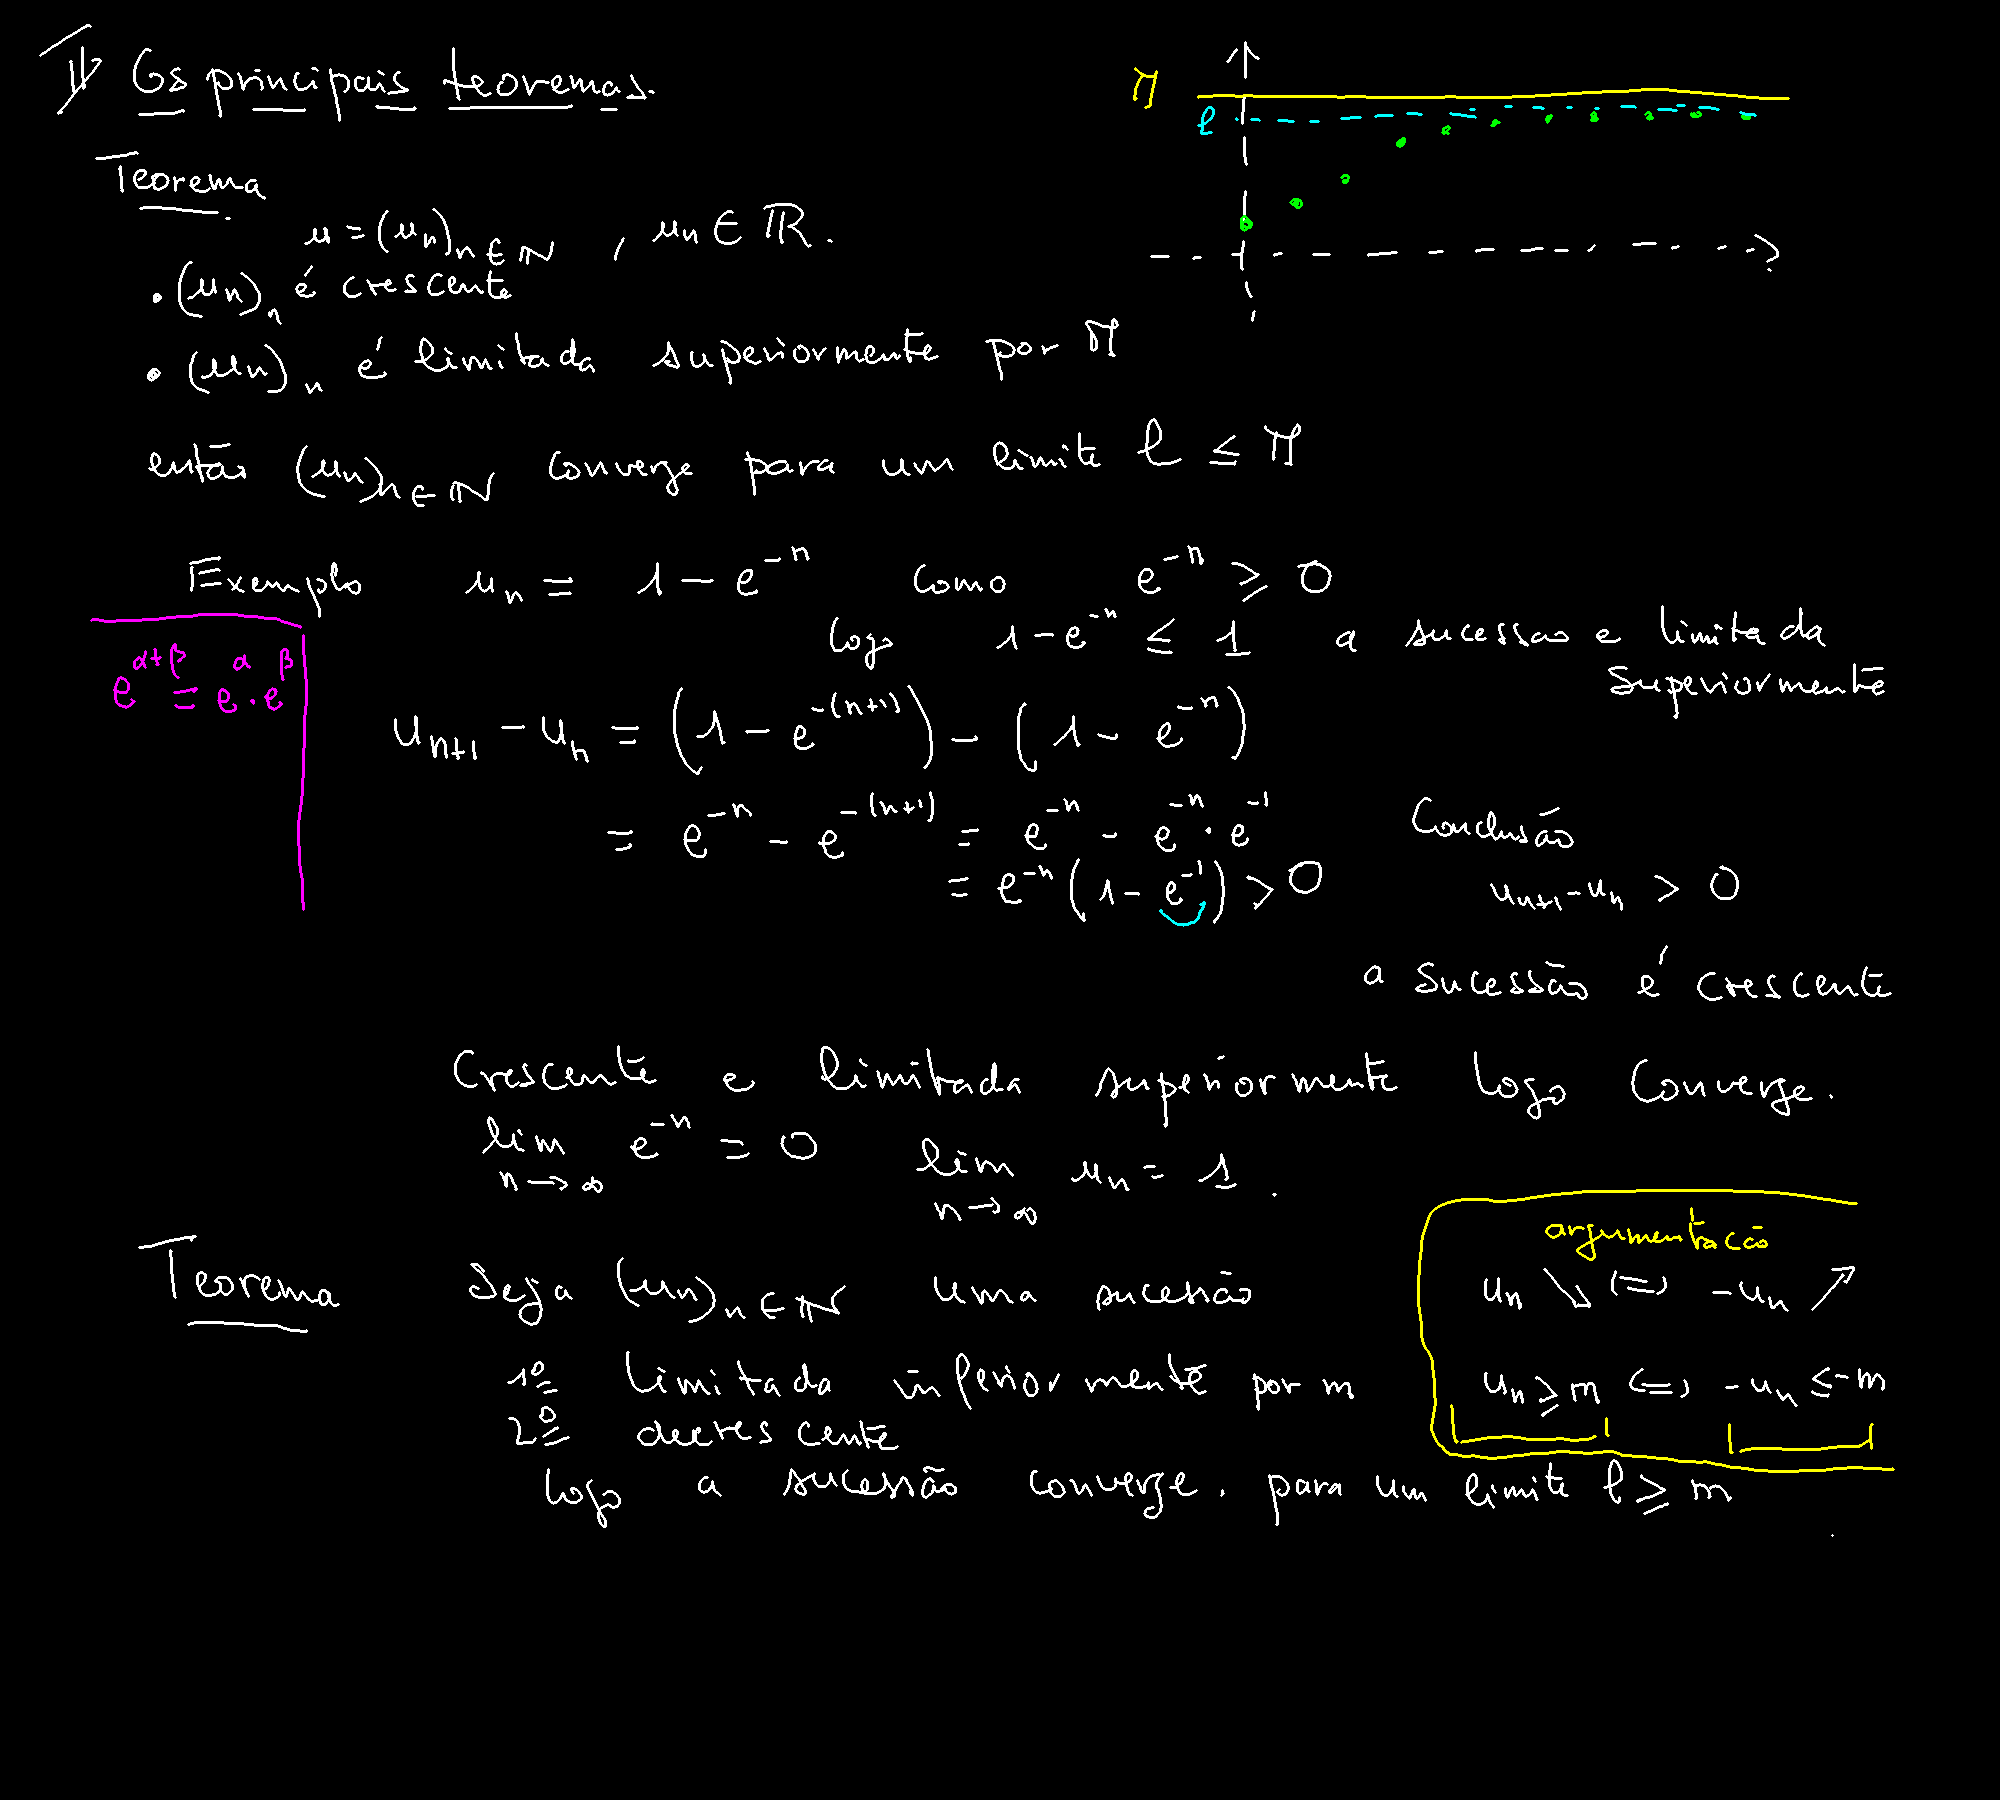 II Os principais teoremas.
M
l
Teorema
u = (un)n∈ℕ , un ∈ ℝ.
• (un)n é crescente
• (un)n é limitada superiormente por M
então (un)n∈ℕ converge para um limite l ≤ M
Exemplo un = 1 - e^{-n} como e^{-n} ⩾ 0
logo 1 - e^{-n} ≤ 1 a sucessao e limitada
superiormente
e^{α+β} = e^α · e^β
u_{n+1} - u_n = (1 - e^{-(n+1)}) - (1 - e^{-n})
= e^{-n} - e^{-(n+1)} = e^{-n} - e^{-n} · e^{-1}
= e^{-n} (1 - e^{-1}) > 0
Conclusão
u_{n+1} - u_n > 0
a sucessão é crescente
Crescente e limitada superiormente logo converge.
lim n→∞ e^{-n} = 0 lim n→∞ un = 1.
Teorema Seja (un)n∈ℕ uma sucessão
1º limitada inferiormente por m
2º decrescente
logo a sucessão converge. para um limite l ⩾ m
argumentacão
un ↘ (=) -un ↗
un ⩾ m (=) -un ≤ -m